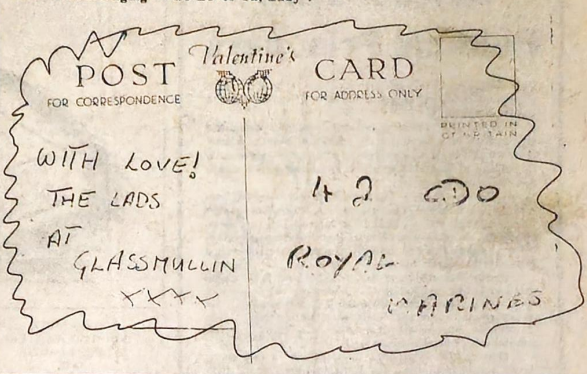 POST Valentine's CARD
FOR CORRESPONDENCE
FOR ADDRESS ONLY
PRINTED IN
GT BRITAIN
WITH LOVE!
THE LADS
AT
GLASSMULLIN
XXXX
42 CDO
ROYAL
MARINES